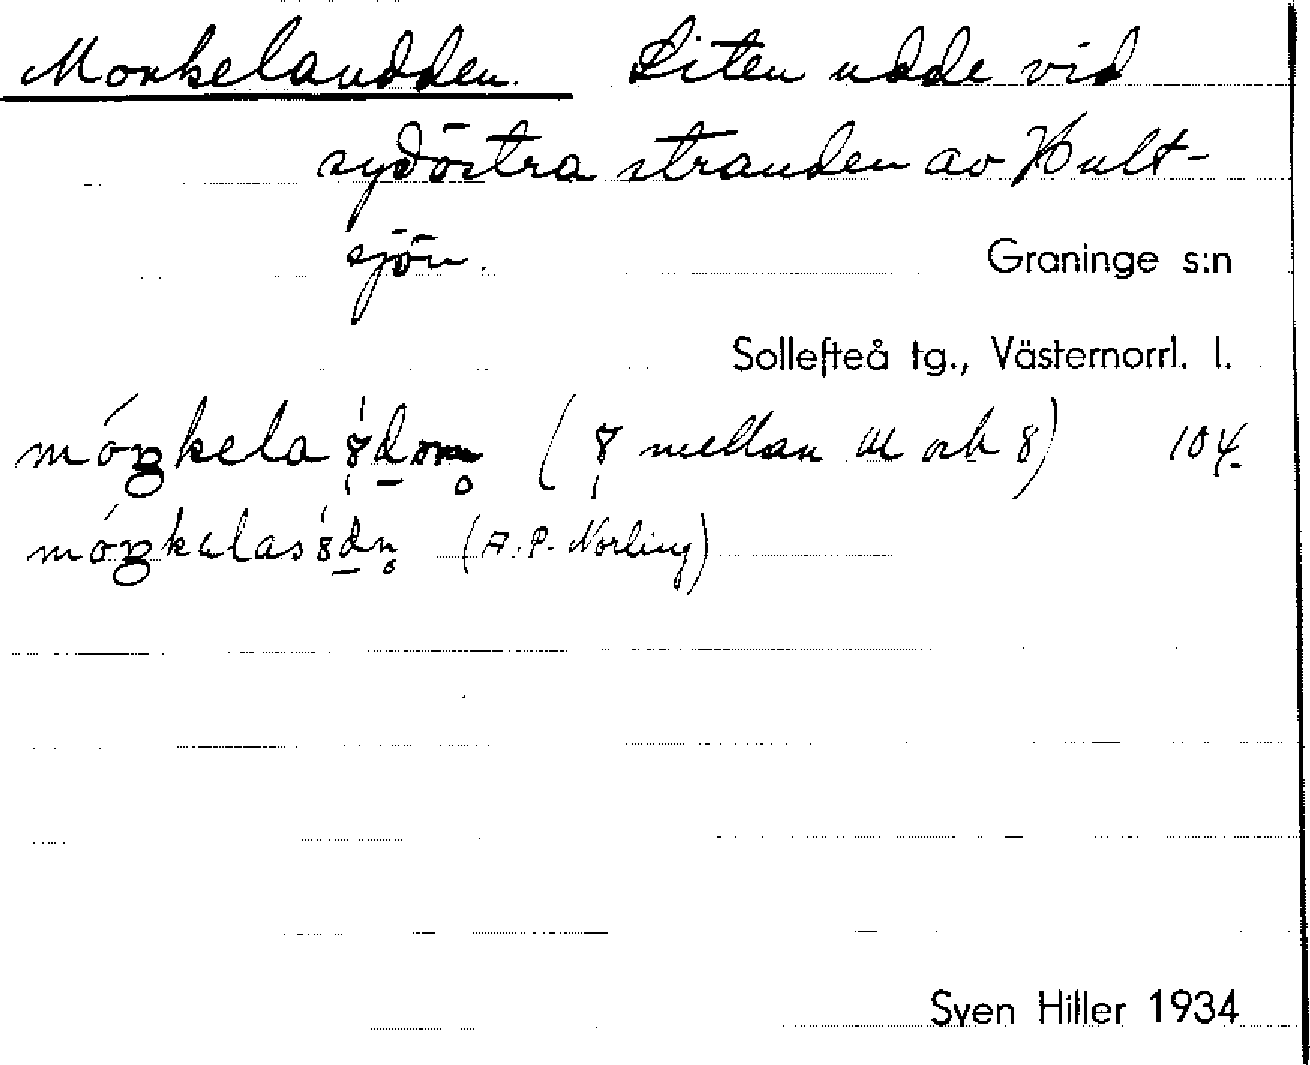 Monkelaudden. Liten udde vid
sydöstra stranden av Hult-
sjön.
Graninge s:n
Sollefteå tg., Västernorrl. l.
( mellan u och 8) 104.
(A. P. Norling)
Sven Hiller 1934